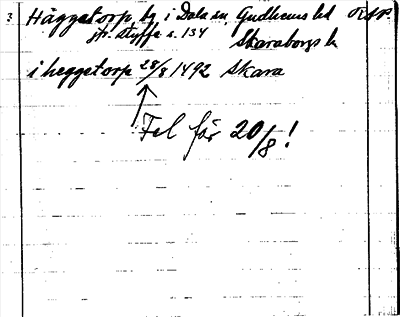 3 Häggetorp by i Dala sn Gudhems hd RAP.
jfr. Styffe s. 134 Skaraborgs l.
i heggetorp 28/8 1492 Skara
Fel för 20/8!